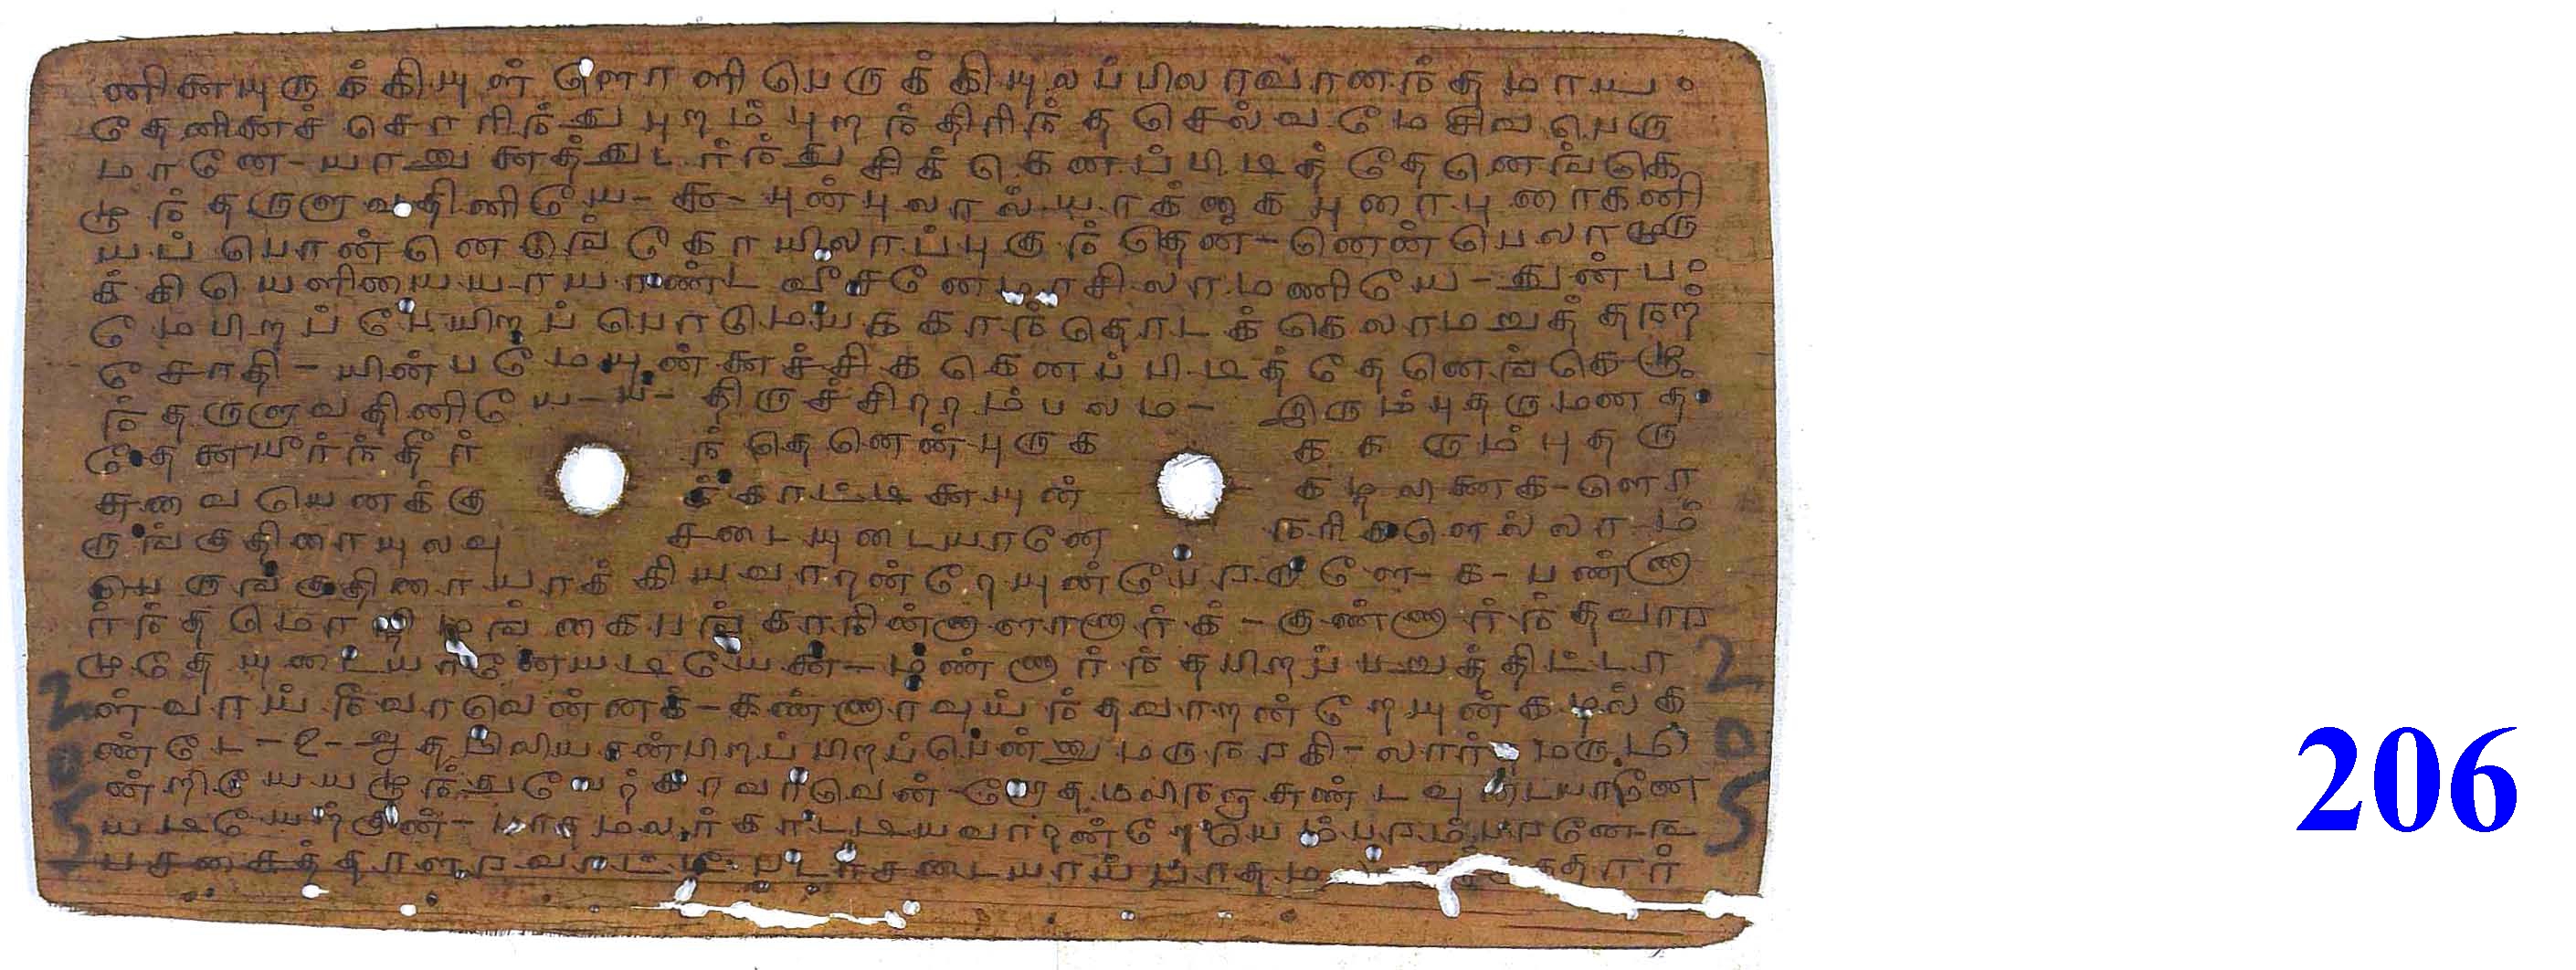 னினையுருக்கியுள் ளொளிபெருக்கியுலப்பிலாவானந்தமாய
தேனினைச் சொரிந்து புறம்புறந்திரிந்த செல்வமே சிவபெரு
மானே-யானுனைத்துடர்ந்து சிக்கெனப்பிடித்தேனெங்கெ
ழுந்தருளுவதினியே-௯-புன்புலால்யாக்கை புரைபுரைகனி
யப் பொன்னெடுங்கோயிலாப்புகுந்தென்-னென்பெலாமுரு
க்கியெளியையயாயாண்ட வீசனேமாசிலாமணியே-துன்ப
மேபிறப்பேயிறப்பொடுமயககாந்தொடக்கெலாமறுத்தநற்
சோதி-யின்பமேயுன்னைச்சிககெனப்பிடித்தேனெங்கெழு
ந்தருளுவதினியே-ய-திருச்சிறறம்பலம- இரும்புதருமனத
தேனையீர்ந்தீர் ந்தெனென்புருக க கரும்புதரு
சுவையெனக்கு க்காட்டினையுன் கழலிணைக-ளொ
ருங்குதிரையுலவு சடையுடையானே நரிகளெல்லாம்
பெருங்குதிரையாக்கியவாறன்றேயுன்பேரருளே-க-பண்ணா
ர்ந்தமொழிமங்கைபங்காநின்னாளானார்க்-குண்ணார்ந்தவார
முதேயுடையானேயடியேனை-மண்ணார்ந்தபிறப்பறுத்திட்டா
ள்வாய்நீவாவென்னக்-கண்ணாரவுய்ந்தவாறன்றேயுன்கழல்க
ண்டே-உ-ஆதமிலியான்பிறப்பிறப்பென்னுமருநரகி-லார்தமரும
ன்றியேயழுந்துவேற்காவாவென்-றோதமலிநஞ்சுண்டவுடையானே
யடியேற்குன்-பாதமலர்காட்டியவாறன்றேயெம்பரம்பரனே-௩
பசசைத்தாளரவாட்டீ படர்சடையாய்பாதம
205
205
206